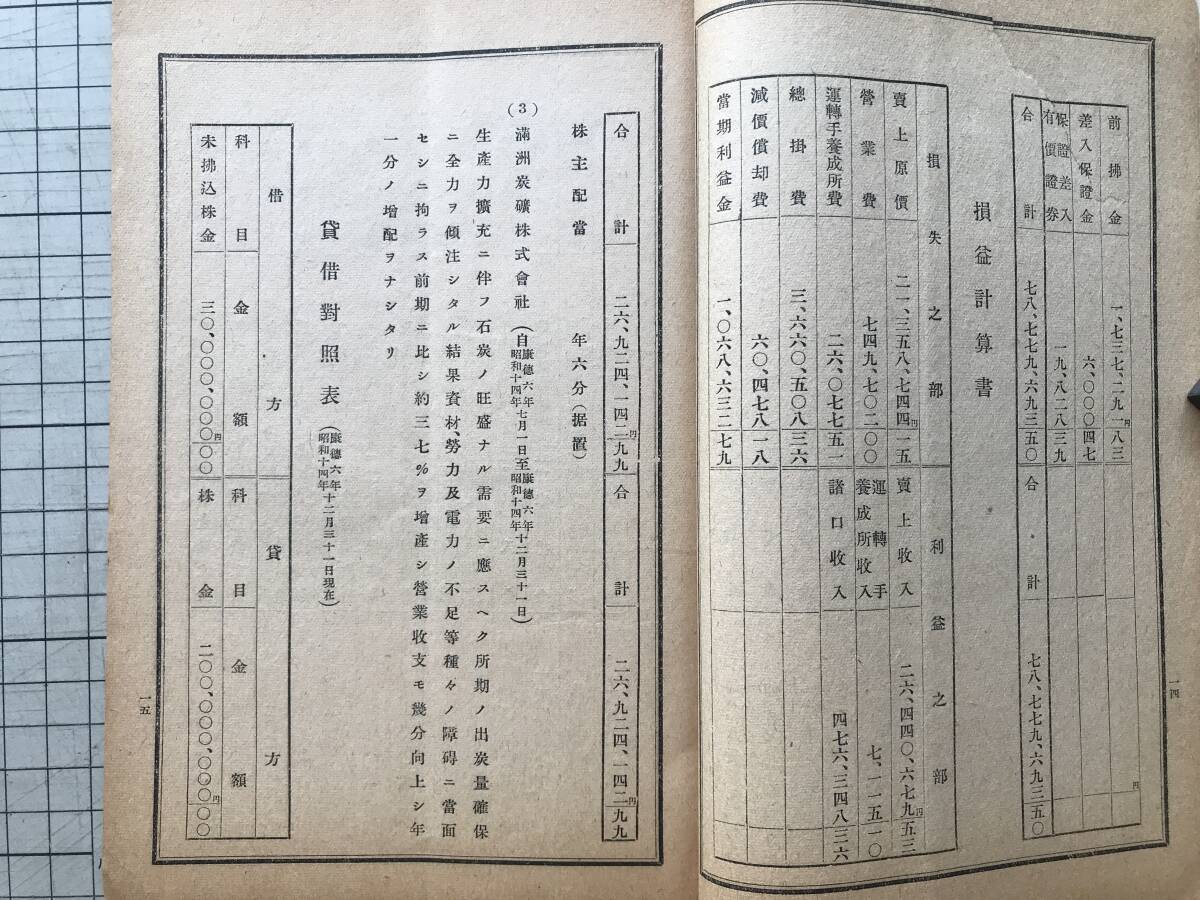 前拂金 一、七三七、二九一円八三
差入保證金 六、〇〇〇四七
保證差入有價證券 一九、八二八三九
合計 七八、七七九、六九三五〇 合計 七八、七七九、六九三五〇
円
損益計算書
損失之部 利益之部
賣上原價 二一、三五八、七四四円一五 賣上收入 二六、四四〇、六七九円五三
營業費 七四九、七〇二〇〇 運轉手養成所收入 七、一一五一〇
運轉手養成所費 二六、〇七七五一 諸口收入 四七六、三四八三六
總掛費 三、六六〇、五〇八三六
減價償却費 六〇、四七八一八
當期利益金 一、〇六八、六三二七九
一四
合計 二六、九二四、一四二円九九 合計 二六、九二四、一四二円九九
株主配當 年六分(据置)
(3) 滿洲炭礦株式會社(自康德六年昭和十四年七月一日至康德六年昭和十四年十二月三十一日)
生產力擴充ニ伴フ石炭ノ旺盛ナル需要ニ應スヘク所期ノ出炭量確保
ニ全力ヲ傾注シタル結果資材、勞力及電力ノ不足等種々ノ障碍ニ當面
セシニ拘ラス前期ニ比シ約三七%ヲ增產シ營業收支モ幾分向上シ年
一分ノ增配ヲナシタリ
貸借對照表(康德六年昭和十四年十二月三十一日現在)
借方 貸方
科目 金額 科目 金額
未拂込株金 三〇、〇〇〇、〇〇〇円〇〇 株金 二〇〇、〇〇〇、〇〇〇円〇〇
一五